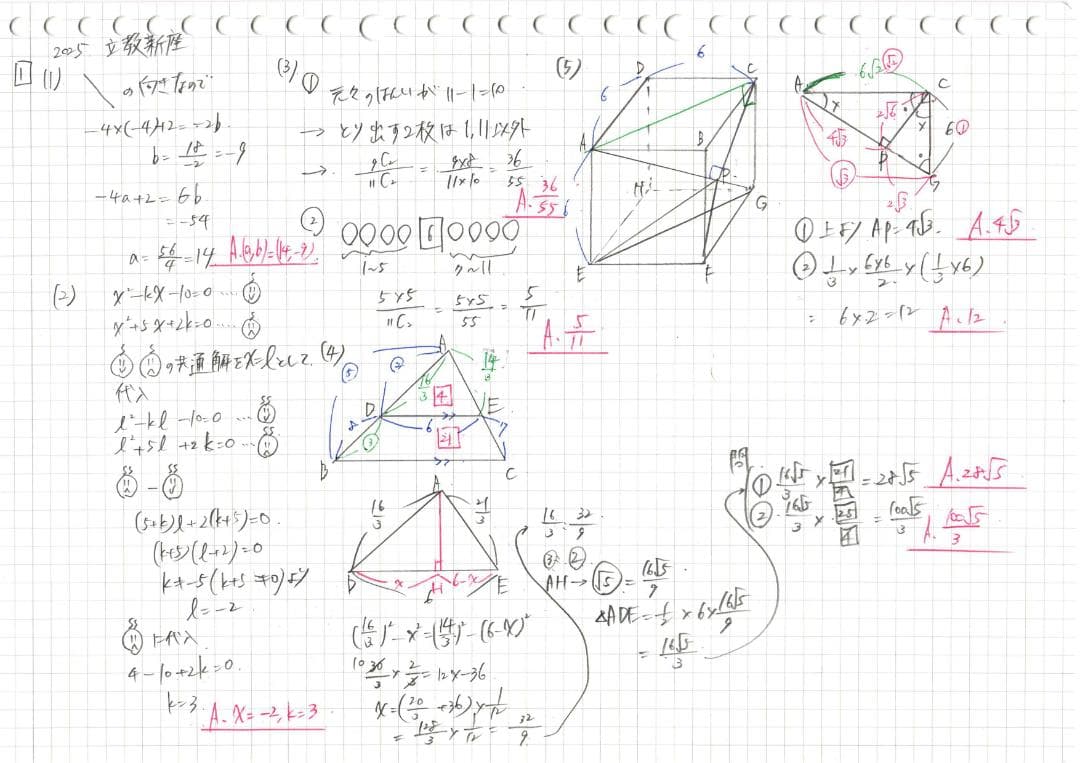 2025 立教新座
1 (1)
の向きなので
-4×(-4)+2=-2b
b=18/-2=-9
-4a+2=6b
=-54
a=56/4=14 A.(a,b)=(14,-9)
(2) x²-kx-10=0 ....
x²+5x+2k=0 ....
の共通解をx=lとして、
代入
l²-kl-10=0 ...
l²+5l+2k=0 ...
-
(5+k)l+2(k+5)=0
(k+5)(l+2)=0
k≠-5(k+5≠0)より
l=-2
に代入
4-10+2k=0
k=3
A. x=-2, k=3
(3) ①
元々のはんいが 11-1=10
→ とり出す2枚は1,11以外
→ 9C2/11C2=9×8/11×10=36/55
A.36/55
②
6
1~5 7~11
5×5/11C2=5×5/55=5/11
A.5/11
(4)
A
⑤ ② 16/3 14/3
4
D E
8 6 7
③ 21
B C
A
16/3 14/3
D x H 6-x E
6
(16/3)²-x²=(14/3)²-(6-x)²
10 30/3×2/3=12x-36
x=(20/3+36)×1/12
=128/3×1/12=32/9
16/3:32/9
③:②
AH→√5=16√5/9
△ADE=1/2×6×16√5/9
=16√5/3
問
①16√5/3×21/4=28√5 A.28√5
②16√5/3×25/4=100√5/3
A.100√5/3
(5)
6
D C
6
A B
H P
6 G
E F
6√2 √2
A C
x x
2√6
4√3 6 ①
P
√3 G
2√3
①上より AP=4√3. A.4√3
②1/3×6×6/2×(1/3×6)
=6×2=12 A.12